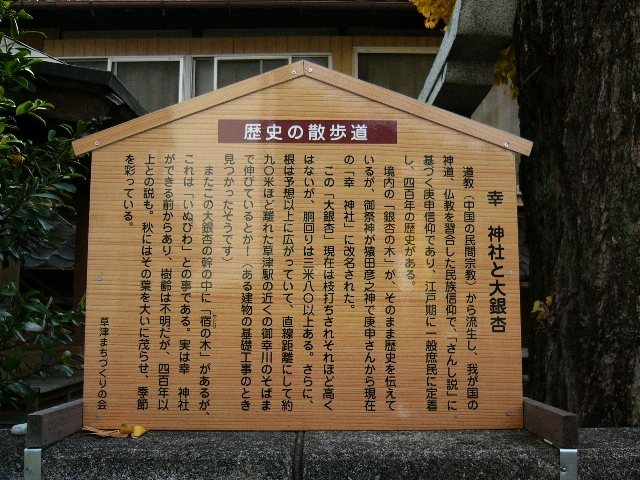 歴史の散歩道
幸 神社と大銀杏
道教（中国の民間宗教）から流生し、我が国の
神道、仏教を習合した民族信仰で、「さんし説」に
基づく庚申信仰であり、江戸期に一般庶民に定着
し、四百年の歴史がある。
境内の「銀杏の木」が、そのまま歴史を伝えて
いるが、御祭神が猿田彦之神で庚申さんから現在
の「幸 神社」に改名された。
この「大銀杏」現在は枝打ちされそれほど高く
はないが、胴回りは三米八〇以上ある。さらに、
根は予想以上に広がっていて、直線距離にして約
九〇米ほど離れた草津駅の近くの御幸川のそばま
で伸びているとか！（ある建物の基礎工事のとき
見つかったそうです）
またこの大銀杏の幹の中に「宿の木」があるが、
これは「いぬびわ」との事である。実は幸 神社
ができる前からあり、樹齢は不明だが、四百年以
上との説も。秋にはその葉を大いに茂らせ、季節
を彩っている。
草津まちづくりの会